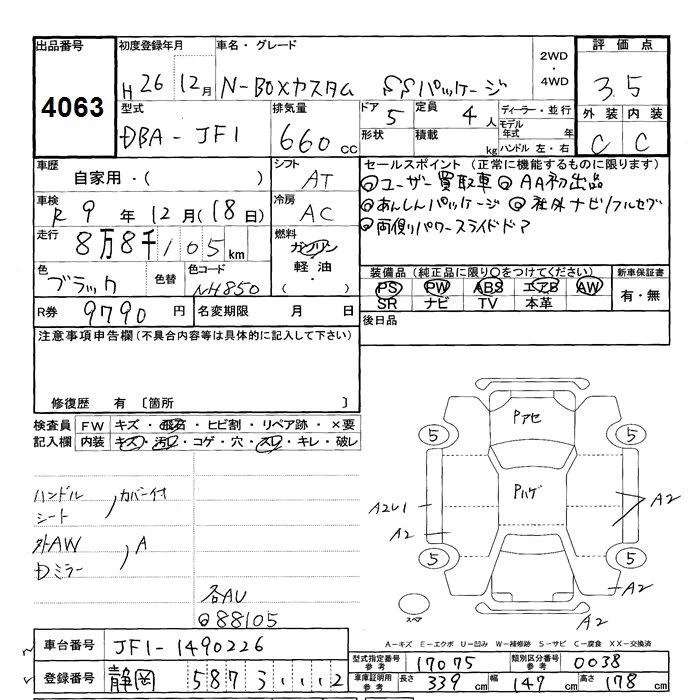 出品番号 4063
初度登録年月 H 26 12月
車名・グレード N-BOXカスタム SSパッケージ
2WD・4WD
評価点 3.5
外装 C 内装 C
型式 DBA-JF1
排気量 660cc
ドア 5 形状
定員 4人 積載 kg
ディーラー・並行
モデル年式 年
ハンドル 左・右
車歴 自家用・( )
シフト AT
車検 R 9年 12月(18日)
冷房 AC
走行 8万8千105km
燃料 ガソリン 軽油・( )
色 ブラック 色替 色コード NH850
R券 9790円 名変期限 月 日
セールスポイント(正常に機能するものに限ります)
◎ユーザー買取車 ◎AA初出品
◎あんしんパッケージ ◎社外ナビ/フルセグ
◎両側パワースライドドア
装備品(純正品に限り○をつけてください) 新車保証書
PS PW ABS エアB AW 有・無
SR ナビ TV 本革
後日品
注意事項申告欄(不具合内容等は具体的に記入して下さい)
修復歴 有 〔箇所
検査員記入欄
FW キズ・飛石・ヒビ割・リペア跡・×要
内装 キズ・汚レ・コゲ・穴・スレ・キレ・破レ
ハンドル シート カバー付
外AW Dミラー A
各AU
◎88105
Pアセ
Pハゲ
5 5
5 5
A2 U1
A2
A2
A2
A2
スペア
A-キズ E-エクボ U-凹み W-補修跡 S-サビ C-腐食 XX-交換済
車台番号 JF1-1490226
登録番号 静岡 587 す ・・・2
型式指定番号 参考 17075 類別区分番号 参考 0038
車庫証明用 参考 長さ 339cm 幅 147cm 高さ 178cm